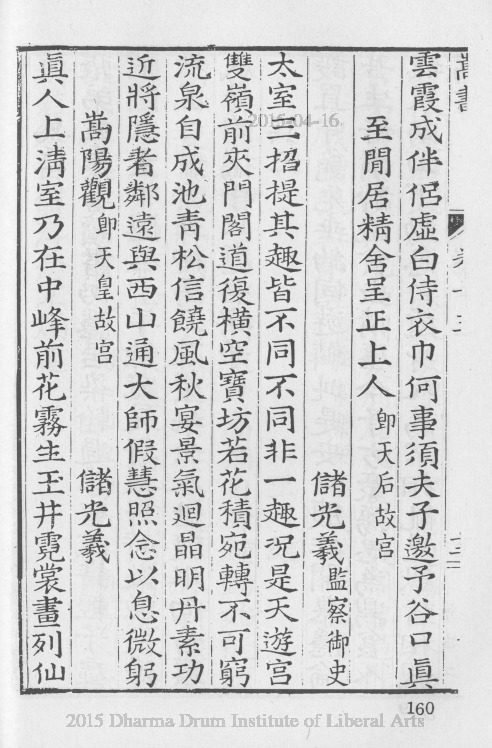 嵩書
卷十三
十二
雲霞成伴侶虛白侍衣巾何事須夫子邀予谷口眞
至閒居精舍呈正上人卽天后故宮
儲光羲監察御史
太室三招提其趣皆不同不同非一趣况是天遊宮
雙嶺前夾門閣道復橫空寶坊若花積宛轉不可窮
流泉自成池靑松信饒風秋宴景氣迴晶明丹素功
近將隱者鄰遠與西山通大師假慧照念以息微躬
嵩陽觀卽天皇故宮
儲光羲
眞人上淸室乃在中峰前花霧生玉井霓裳畫列仙
160
2015-04-16
2015 Dharma Drum Institute of Liberal Arts